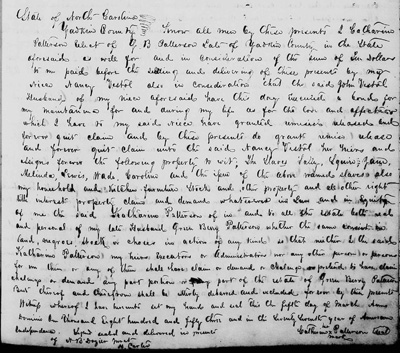 State of North Carolina
Yadkin County Know all men by these presents I Catharine
Patterson Relict of G B Patterson Late of Yadkin County in the State
aforesaid as well for and in consideration of the sum of ten dollars
to me paid before the sealing and delivering of these presents by my
Niece Nancy Vestal also in consideration that the said John Vestal
Husband of my niece aforesaid have this day executed a bond for
my maintainance for and during my life as for the love and affection
which I have to my said niece have granted remissed released and
forever quit claim and by these presents do grant remise release
and forever quit claim unto the said Nancy Vestal her heirs and
assigns forever the following property to wit, The Slaves Sally, Squire, Jane,
Melinda, Lewis, Wade, Caroline and the of the above named slaves also
my household and Kitchen furniture Stock and other property and all other right
title interest property claim and demand whatsoever in Law and in Equity
of me the said Katharine Patterson of in and to all the estate both real
and personal of my late Husband Green Berry Patterson whether the same consist in
land, negroes stock or choses in action of any kind so that neither I the said
Katharine Patterson my heirs Executors or Administrators nor any other person or persons
in or them or any of them shall have claim or demand or to have claim
or demand any part portion of the estate of Green Berry Patterson
But thereof and therefrom shall be utterly debarred and excluded forever by these presents
Witness whereof I have hereunto set my hand and seal this the fifth day of March
domini One Thousand Eight hundred and fifty three and in the Seventy Seventh year of American
Independence. Signed sealed and delivered in presents
of Catharine x Patterson Seal
mark